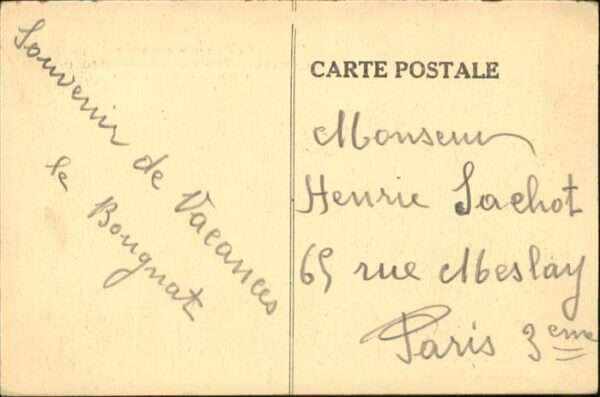 Souvenir de Vacances
le Bougnat
CARTE POSTALE
Monseur
Henrie Sachot
65 rue Meslay
Paris 3eme